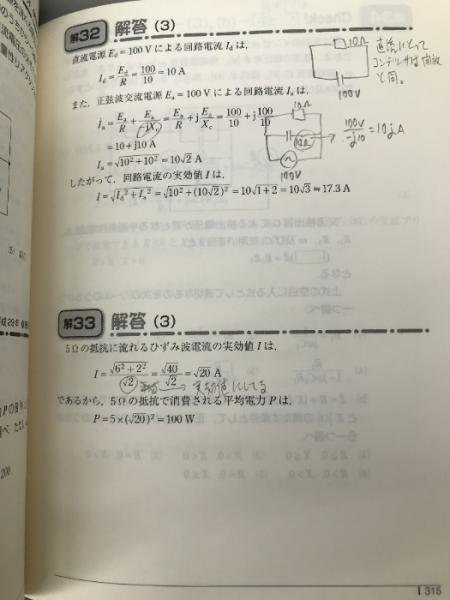 解32 解答 (3)
直流電源 E_d = 100 V による回路電流 I_d は，
I_d = E_d/R = 100/10 = 10 A
また，正弦波交流電源 E_a = 100 V による回路電流 I_a は，
İ_a = E_a/R + E_a/−jX_c = E_a/R + j E_a/X_c = 100/10 + j 100/10
= 10 + j10 A
I_a = √(10² + 10²) = 10√2 A
したがって，回路電流の実効値 I は，
I = √(I_d² + I_a²) = √(10² + (10√2)²) = 10√(1+2) = 10√3 ≒ 17.3 A
10Ω
100V
直流にとって
コンデンサは開放
と同。
10Ω
100V
100V/−j10 = 10j A
解33 解答 (3)
5Ω の抵抗に流れるひずみ波電流の実効値 I は，
I = √(6² + 2²)/√2 = √40/√2 = √20 A
実効値にしてる
であるから，5Ω の抵抗で消費される平均電力 P は，
P = 5 × (√20)² = 100 W
200
315